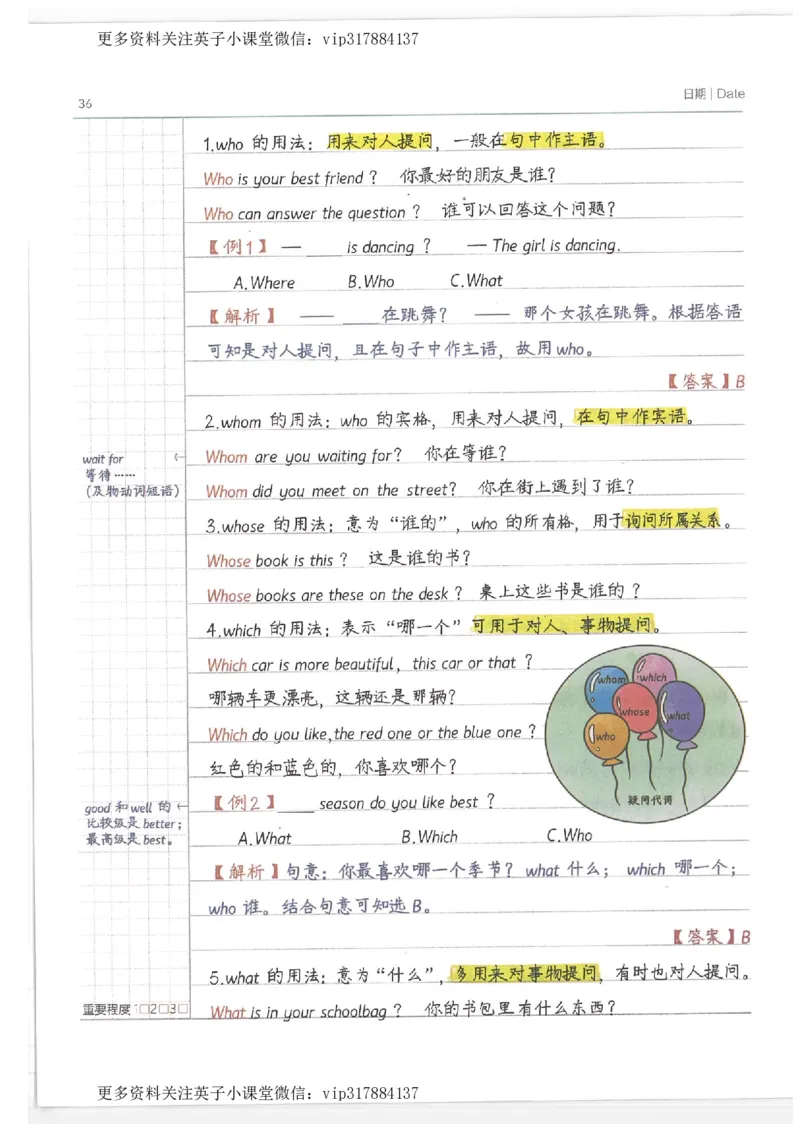 更多资料关注英子小课堂微信：vip317884137
36
日期 | Date
1.who 的用法：用来对人提问，一般在句中作主语。
Who is your best friend？ 你最好的朋友是谁？
Who can answer the question？ 谁可以回答这个问题？
【例1】— ____ is dancing？ — The girl is dancing.
A.Where B.Who C.What
【解析】 —— ____ 在跳舞？ —— 那个女孩在跳舞。根据答语
可知是对人提问，且在句子中作主语，故用who。
【答案】B
2.whom 的用法：who 的宾格，用来对人提问，在句中作宾语。
wait for
等待……
（及物动词短语）
Whom are you waiting for？ 你在等谁？
Whom did you meet on the street？ 你在街上遇到了谁？
3.whose 的用法：意为“谁的”，who 的所有格，用于询问所属关系。
Whose book is this？ 这是谁的书？
Whose books are these on the desk？ 桌上这些书是谁的？
4.which 的用法：表示“哪一个”可用于对人、事物提问。
Which car is more beautiful，this car or that？
哪辆车更漂亮，这辆还是那辆？
Which do you like,the red one or the blue one？
红色的和蓝色的，你喜欢哪个？
whom
which
whose
what
who
疑问代词
good 和 well 的
比较级是 better；
最高级是 best。
【例2】____ season do you like best？
A.What B.Which C.Who
【解析】句意：你最喜欢哪一个季节？what 什么； which 哪一个；
who 谁。结合句意可知选B。
【答案】B
5.what 的用法：意为“什么”，多用来对事物提问，有时也对人提问。
What is in your schoolbag？ 你的书包里有什么东西？
重要程度 1□2□3□
更多资料关注英子小课堂微信：vip317884137